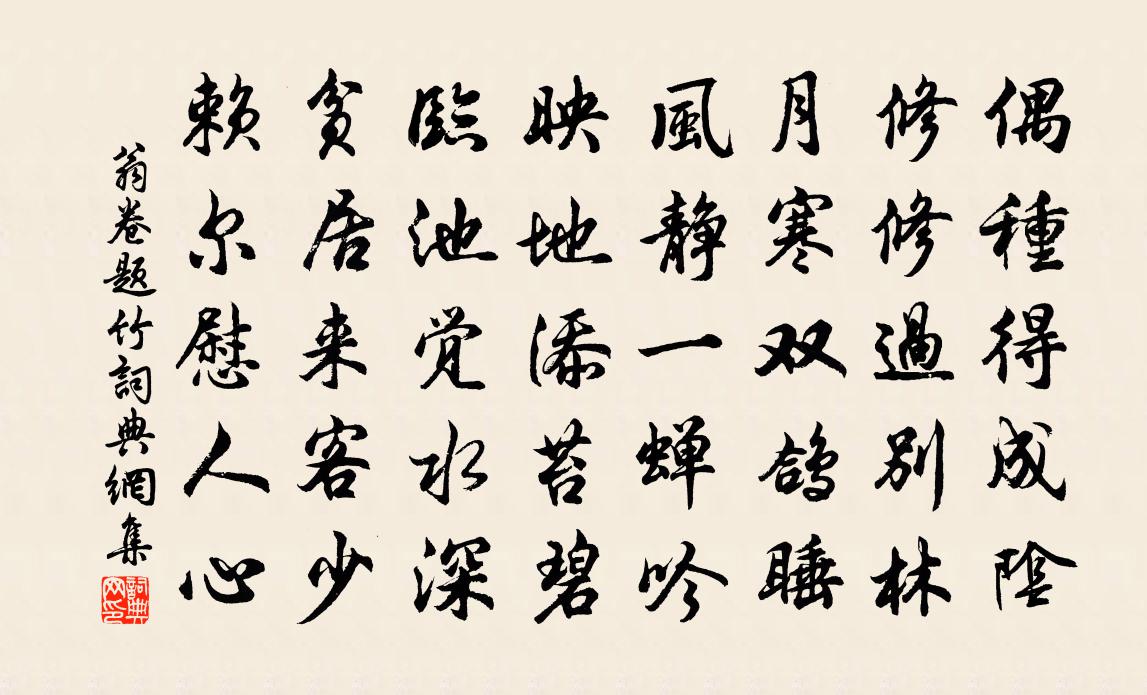 偶種得成陰
修修過別林
月寒双鴿睡
風靜一蝉吟
映地添苔碧
臨池觉水深
貧居来客少
賴尔慰人心
翁卷題竹詞典網集
詞典网印